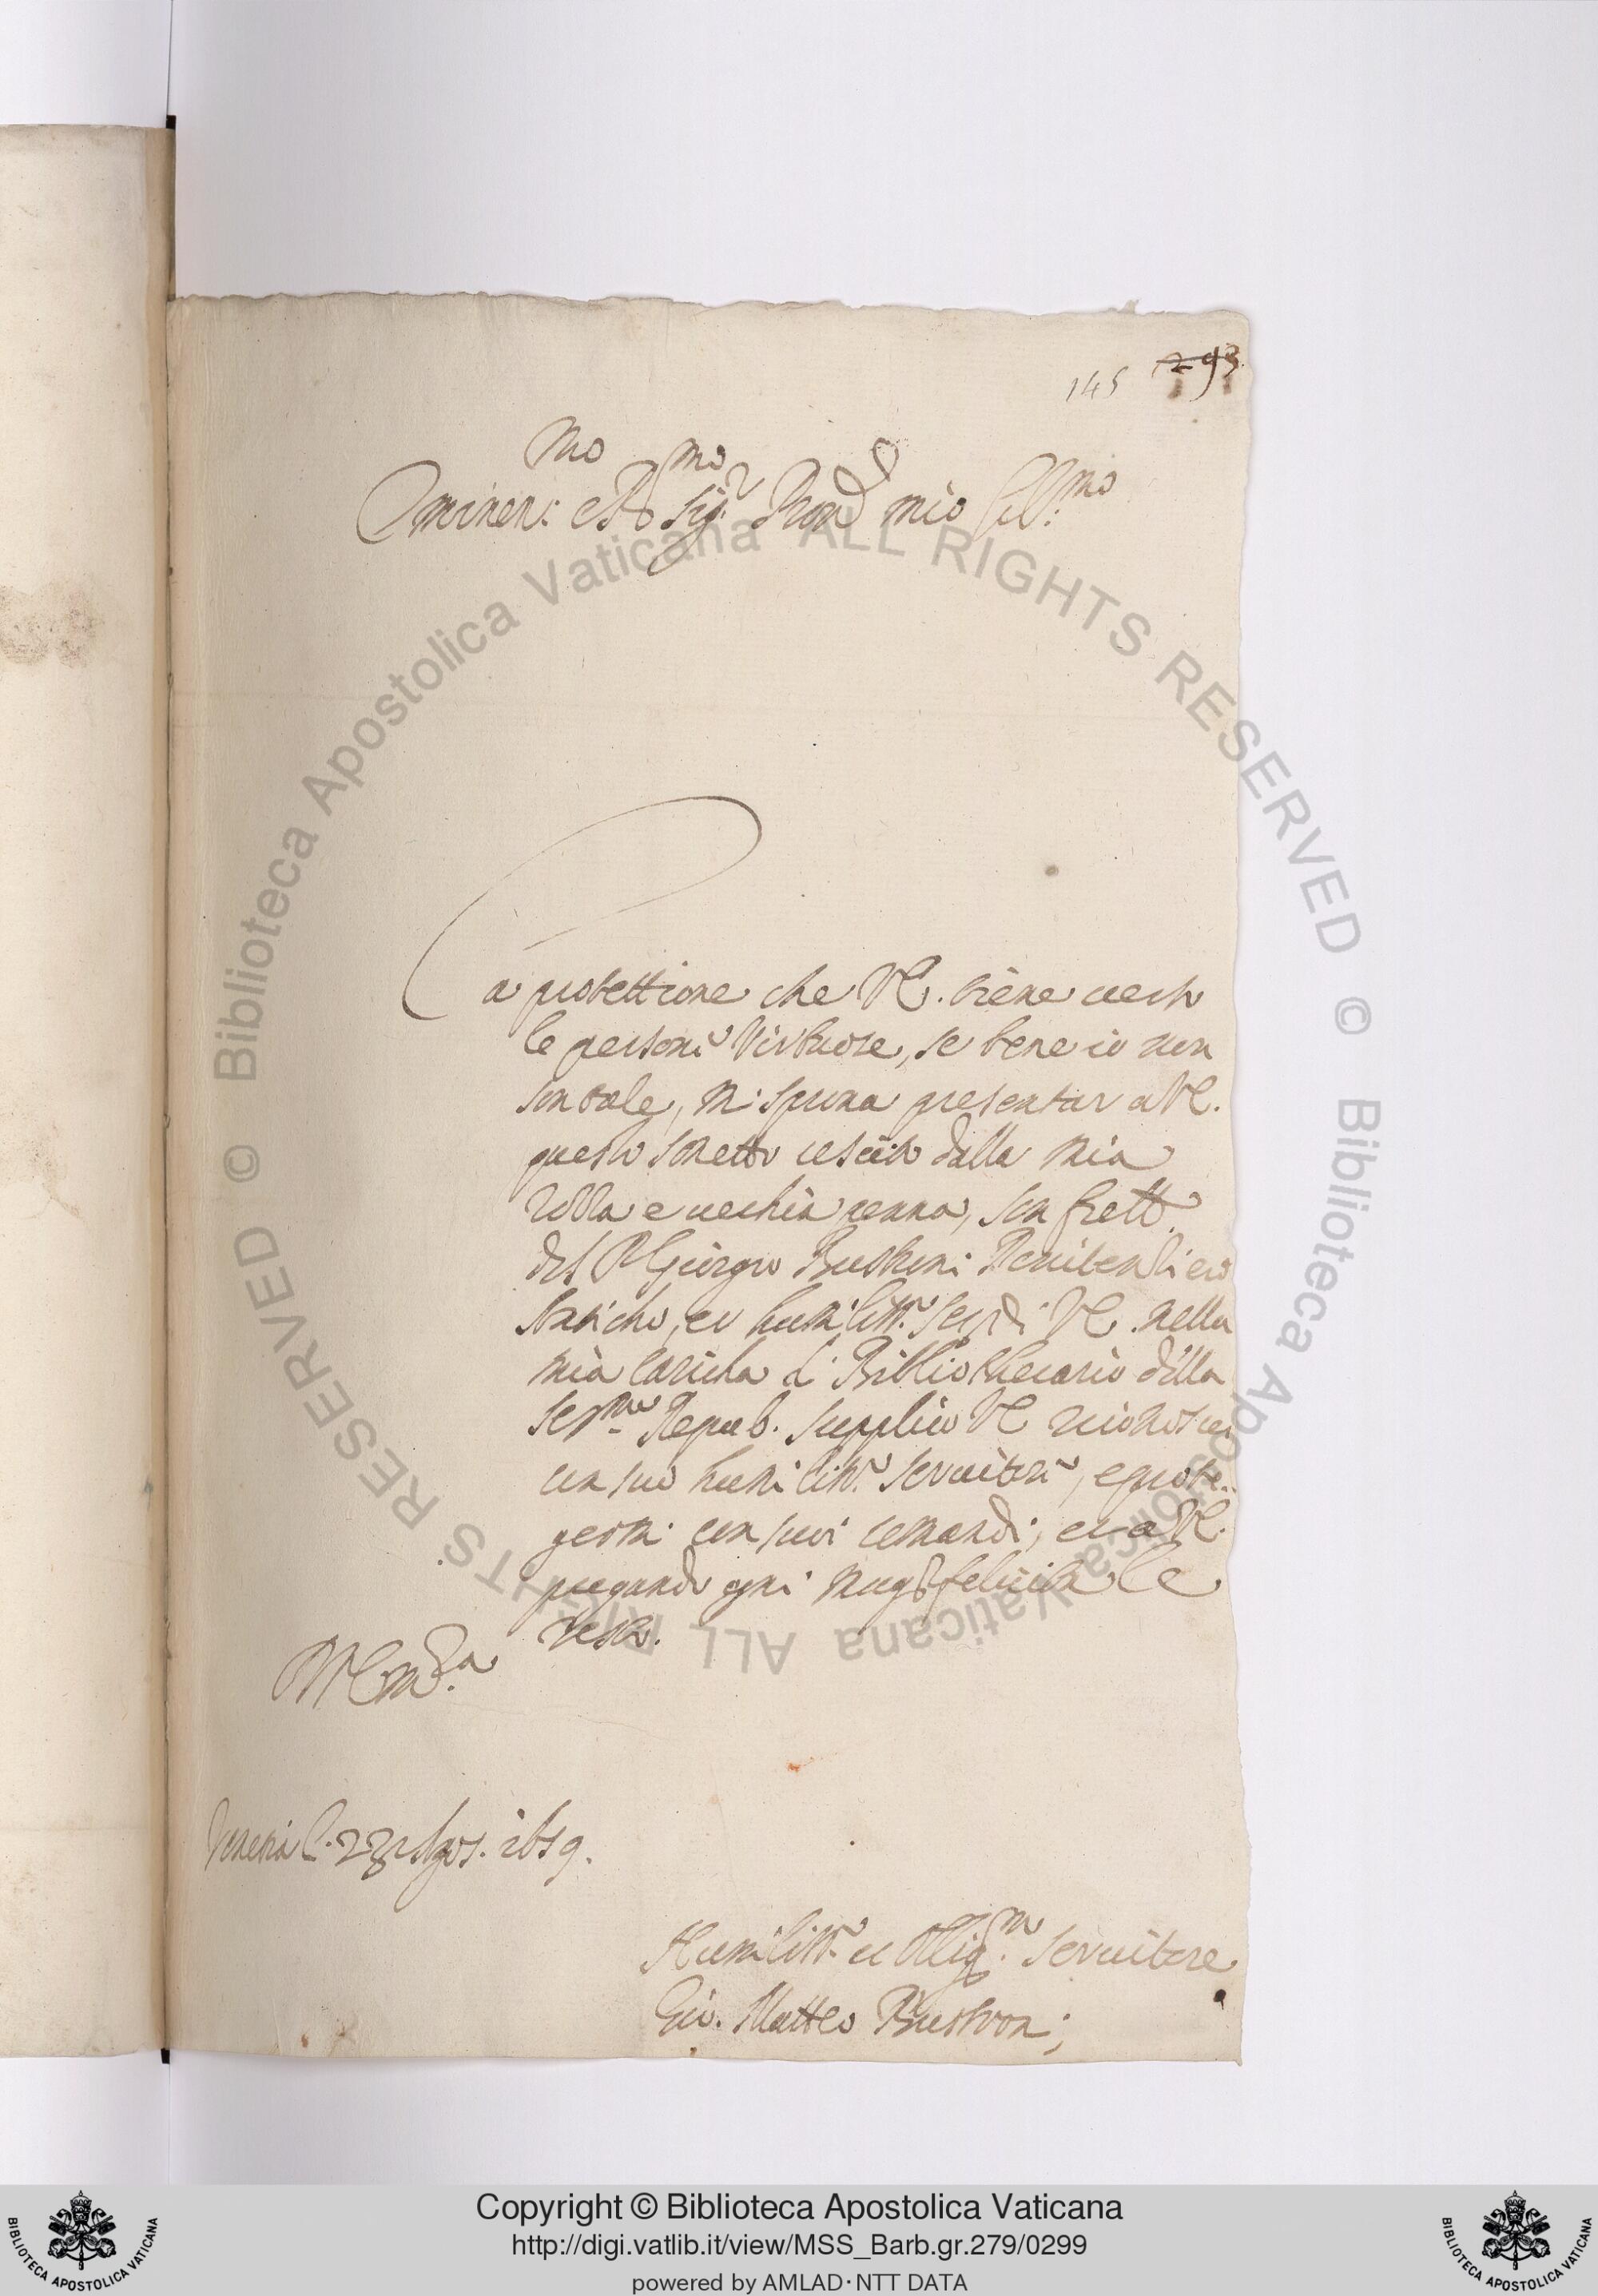 145 293
Eminen:mo et R.mo Sig.r Pron mio Coll.mo
La protettione che VE. tiene uerso
le persone Virtuose, se bene io non
son tale, mi sprona presentar a VE.
questo sonetto uscito dalla mia
rozza e uechia penna, son frello
del P. Giorgio Bustroni Penitentiero
 et humiliss.o ser. di VE. nella
mia caricha di Bibliothecario della
Ser.ma Repub. supplico VE riconoscer
un suo humiliss.o seruitore, e prote-
germi con suoi comandi, et a VE.
pregando ogni magg.r felicita le
resto.
Di V Em.za
Venetia li. 23 Agos. 1659.
Humiliss.o et Oblig.mo Seruitore
Gio. Matteo Bustron;
© Biblioteca Apostolica Vaticana ALL RIGHTS RESERVED © Biblioteca Apostolica Vaticana ALL RIGHTS RESERVED
BIBLIOTECA APOSTOLICA VATICANA
Copyright © Biblioteca Apostolica Vaticana
http://digi.vatlib.it/view/MSS_Barb.gr.279/0299
powered by AMLAD·NTT DATA
BIBLIOTECA APOSTOLICA VATICANA